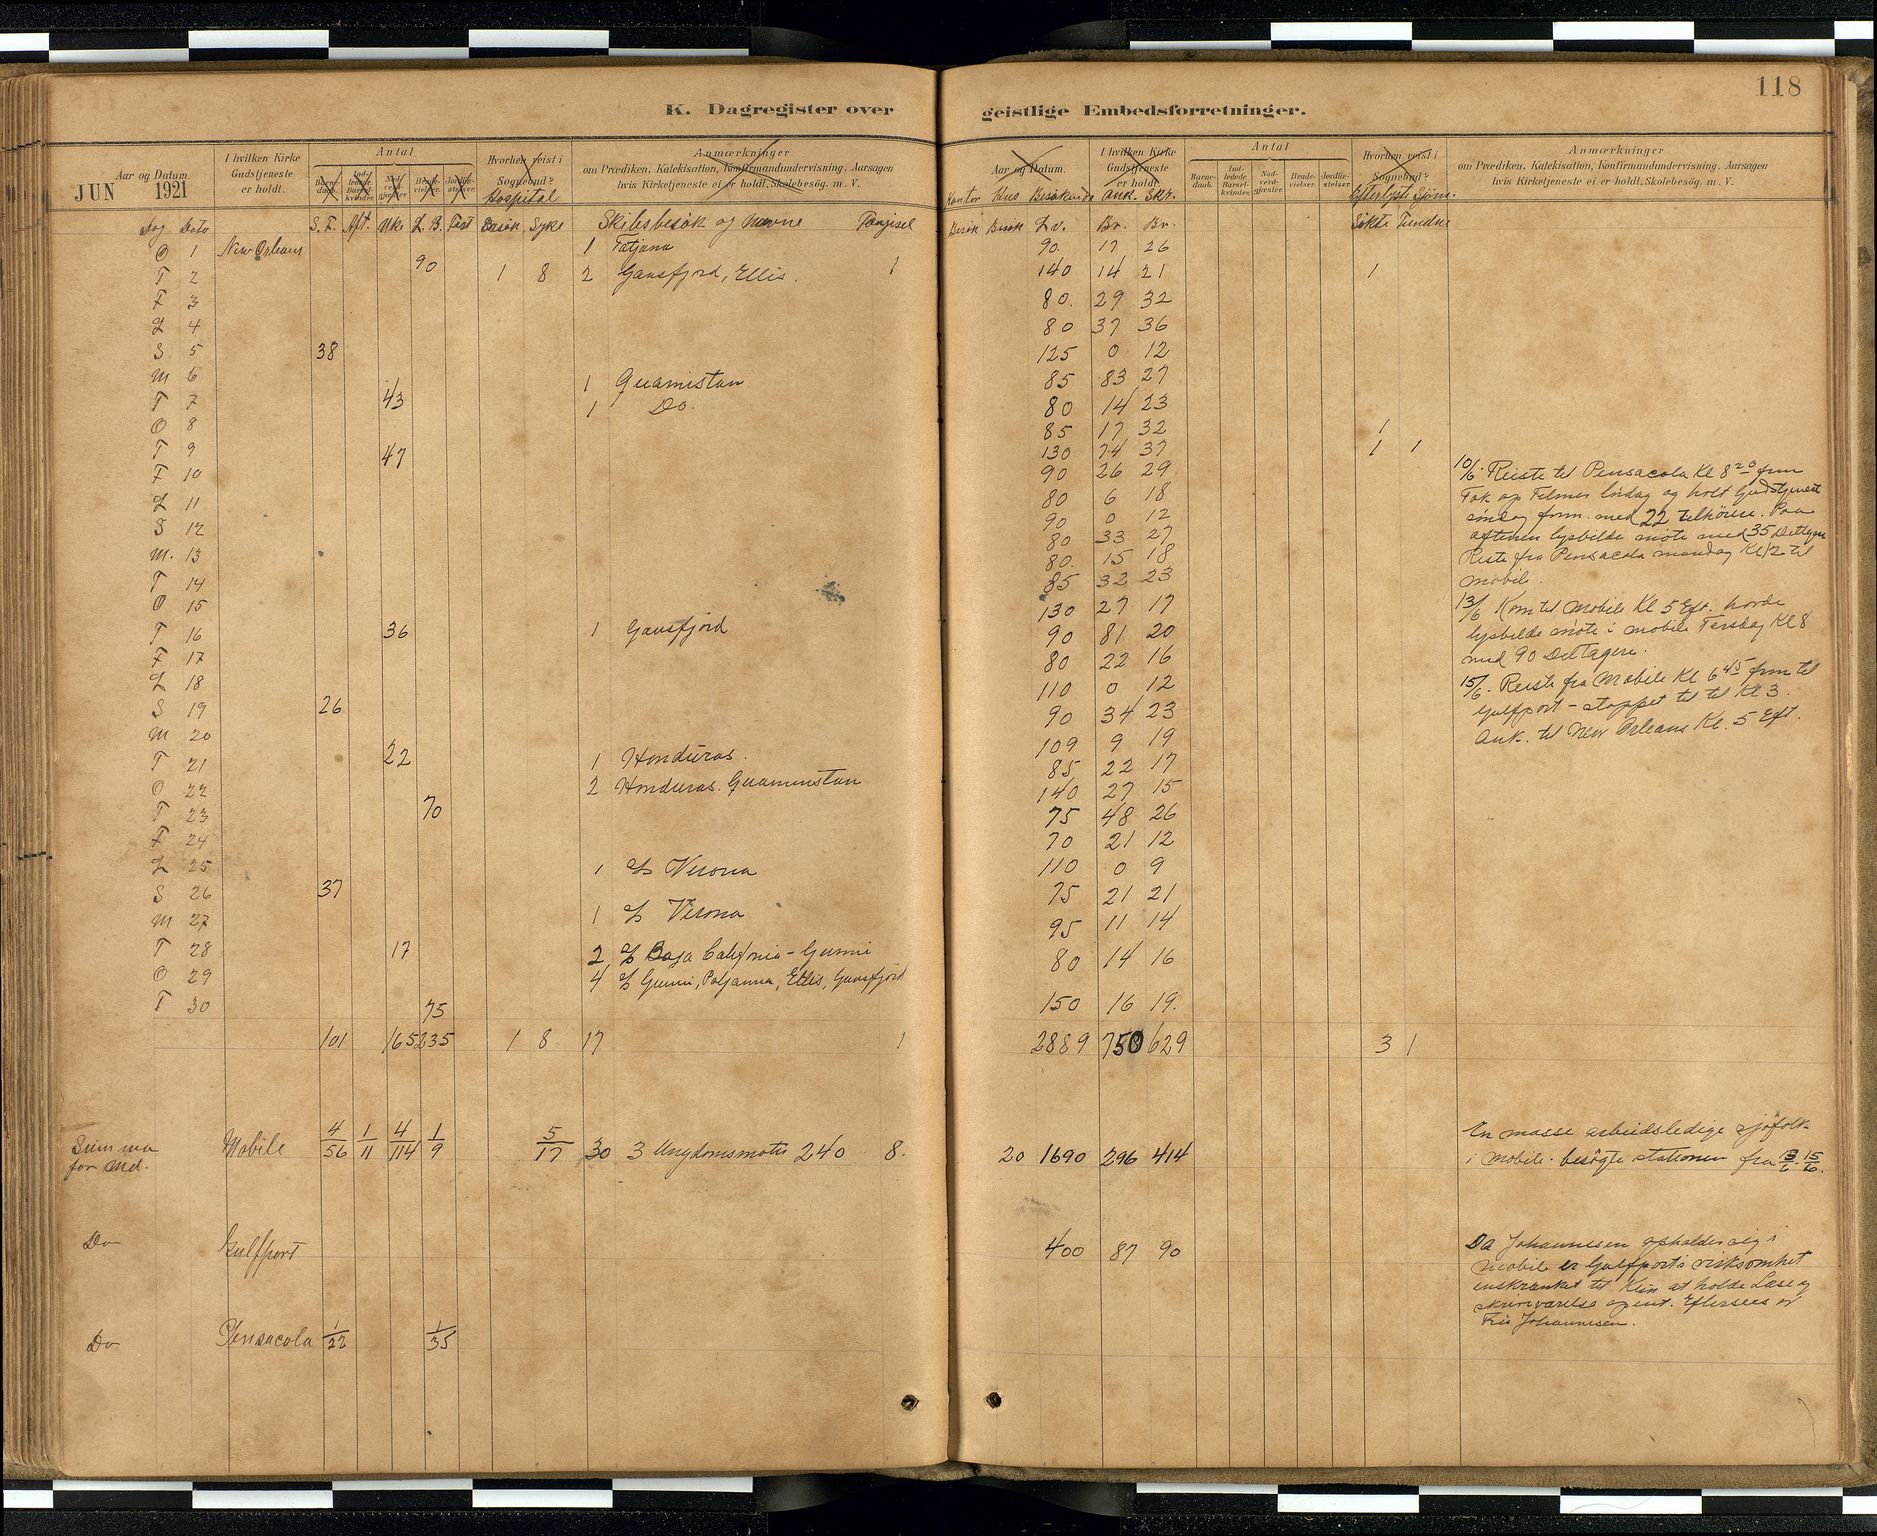 118
K. Dagregister over geistlige Embedsforretninger.
Aar og Datum
JUN 1921
I hvilken Kirke Gudstjeneste er holdt.
Antal
Hvorhen reist i Sognebud?
Hospital
Anmærkninger
om Prædiken, Katekisation, Konfirmandundervisning, Aarsagen
hvis Kirketjeneste ei er holdt, Skolebesøg, m. V.
Dag Dato S. F. Aft. Uke L. B. Fest Besøk Syke Skibsbesøk og Navne Fængsel
O 1 New Orleans 1 Tatjana
T 2 90 1 8 2 Gansfjord, Ellis. 1
F 3
L 4
S 5 38
M 6 1 Guamistan
T 7 43 1 Do.
O 8
T 9 47
F 10
L 11
S 12
M. 13
T 14
O 15
T 16 36 1 Gansfjord
F 17
L 18
S 19 26
M 20
T 21 22 1 Honduras.
O 22 2 Honduras. Guamnustan
T 23 70
F 24
L 25 1 S/S Verona
S 26 37
M 27 1 S/S Verona
T 28 17 2 S/S Baja California - Gunni
O 29 4 S/S Gunni, Patjanna, Ellis, Gansfjord
T 30 75
101 165 235 1 8 17 1
Summa for Md. Mobile 4/56 1/11 4/114 1/9 5/17 30 3 Ungdomsmøter 240 8.
Do Gulfport
Do Pensacola 1/22 1/35
Aar og Datum.
I hvilken Kirke Gudstjeneste er holdt.
Antal
Barnedaab. Indledede Barselkvinder. Nadverdgjæster. Brudevielser. Jordfæstelser.
Hvorhen reist i Sognebud?
Anmærkninger
om Prædiken, Katekisation, Konfirmandundervisning, Aarsagen
hvis Kirketjeneste ei er holdt, Skolebesøg, m. V.
Kontor Hus Besøkende Ank. Skr. Efterlyste Sjøm.
Besøk Besøk Lv. Br. Br. Søkte Fundne
90. 17 26
140 14 21 1
80. 29 32
80 37 36
125 0 12
85 83 27
80 14 23
85 17 32 1
130 74 37 1 1
90 26 29
80 6 18
90 0 12
80 33 27
80. 15 18
85 32 23
130 27 17
90 81 20
80 22 16
110 0 12
90 34 23
109 9 19
85 22 17
140 27 15
75 48 26
70 21 12
110 0 9
75 21 21
95 11 14
80 14 16
150 16 19.
2889 750 629 3 1
20 1690 296 414
400 87 90
10/6. Reiste til Pensacola Kl 8 20 frm
Tok op Filmer lørdag og holt Gudstjenest
søndag frm. med 22 tilhörere. Paa
aftenen lysbilde møte med 35 Deltagere
Reiste fra Pensacola mandag Kl 12 til
Mobil.
13/6 Kom til Mobile Kl 5 Eft. havde
lysbilde møte i Mobile Tirsdag Kl 8
med 90 Deltagere.
15/6. Reiste fra Mobile Kl 6 45 frm til
Gulfport - stoppet til Kl 3.
Ank. til New Orleans Kl. 5 Eft.
En masse arbeidsledige sjøfolk
i Mobile. besøgte stationen fra 13/6 15/6.
Da Johannesen opholder sig i
Mobile er Gulfports virksomhet
inskrænket til Kun at holde Læse og
skriveværelse åpent. Eftersees av
Fru Johannesen.